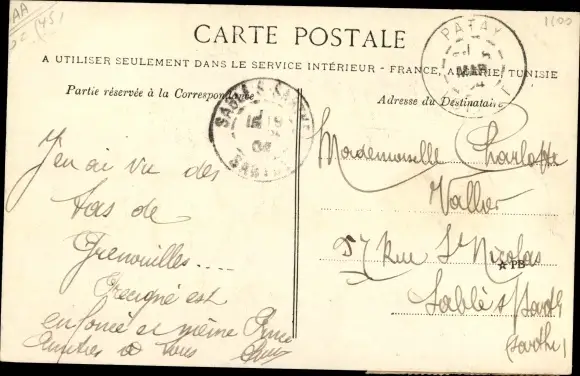 CARTE POSTALE
A UTILISER SEULEMENT DANS LE SERVICE INTÉRIEUR - FRANCE, ALGÉRIE, TUNISIE
Partie réservée à la Correspondance
Adresse du Destinataire
PATAY
MAR
04
SABLÉ-S-SARTHE
SARTHE
04
J'en ai vu des
tas de
Grenouilles....
est
enfoncé et même
Amitiés à tous
Mademoiselle Charlotte
Vallier
57 Rue St Nicolas
☆ PB
Sablé s/ Sarth
(Sarthe)
1100
(45)